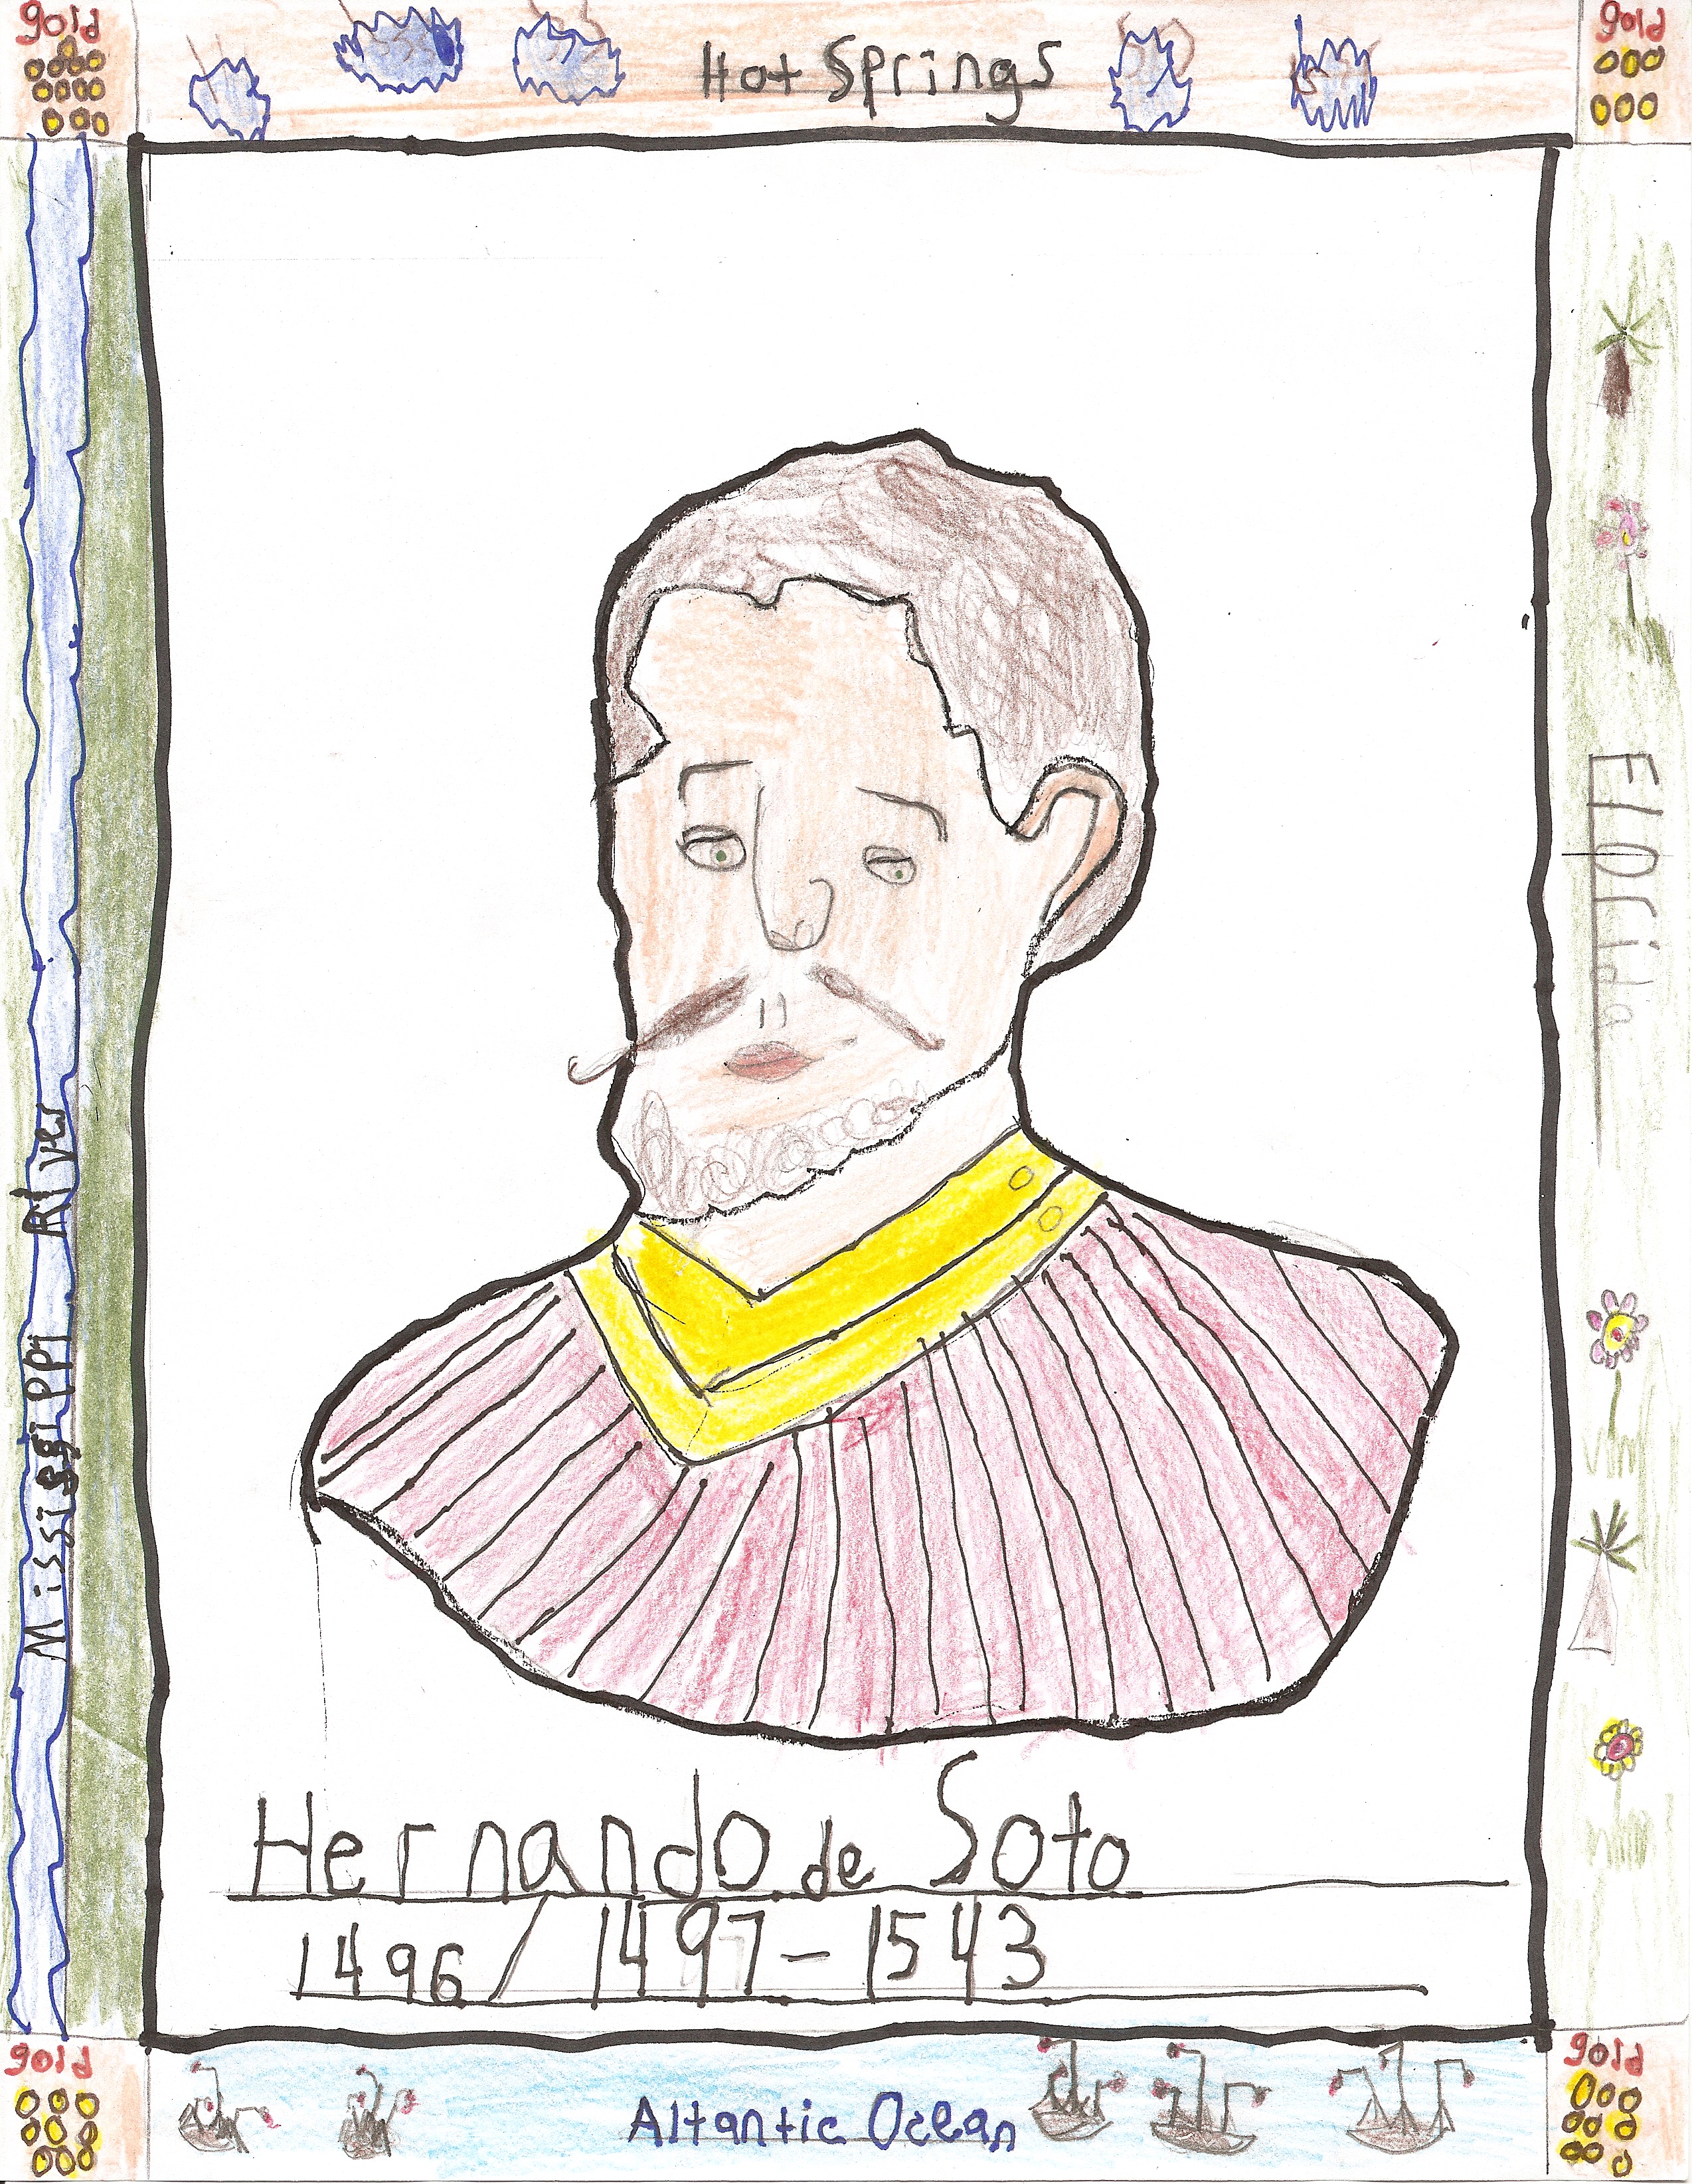 gold
Hot Springs
gold
Missisgippi River
Florida
Hernando de Soto
1496/1497-1543
gold
Altantic Ocean
gold